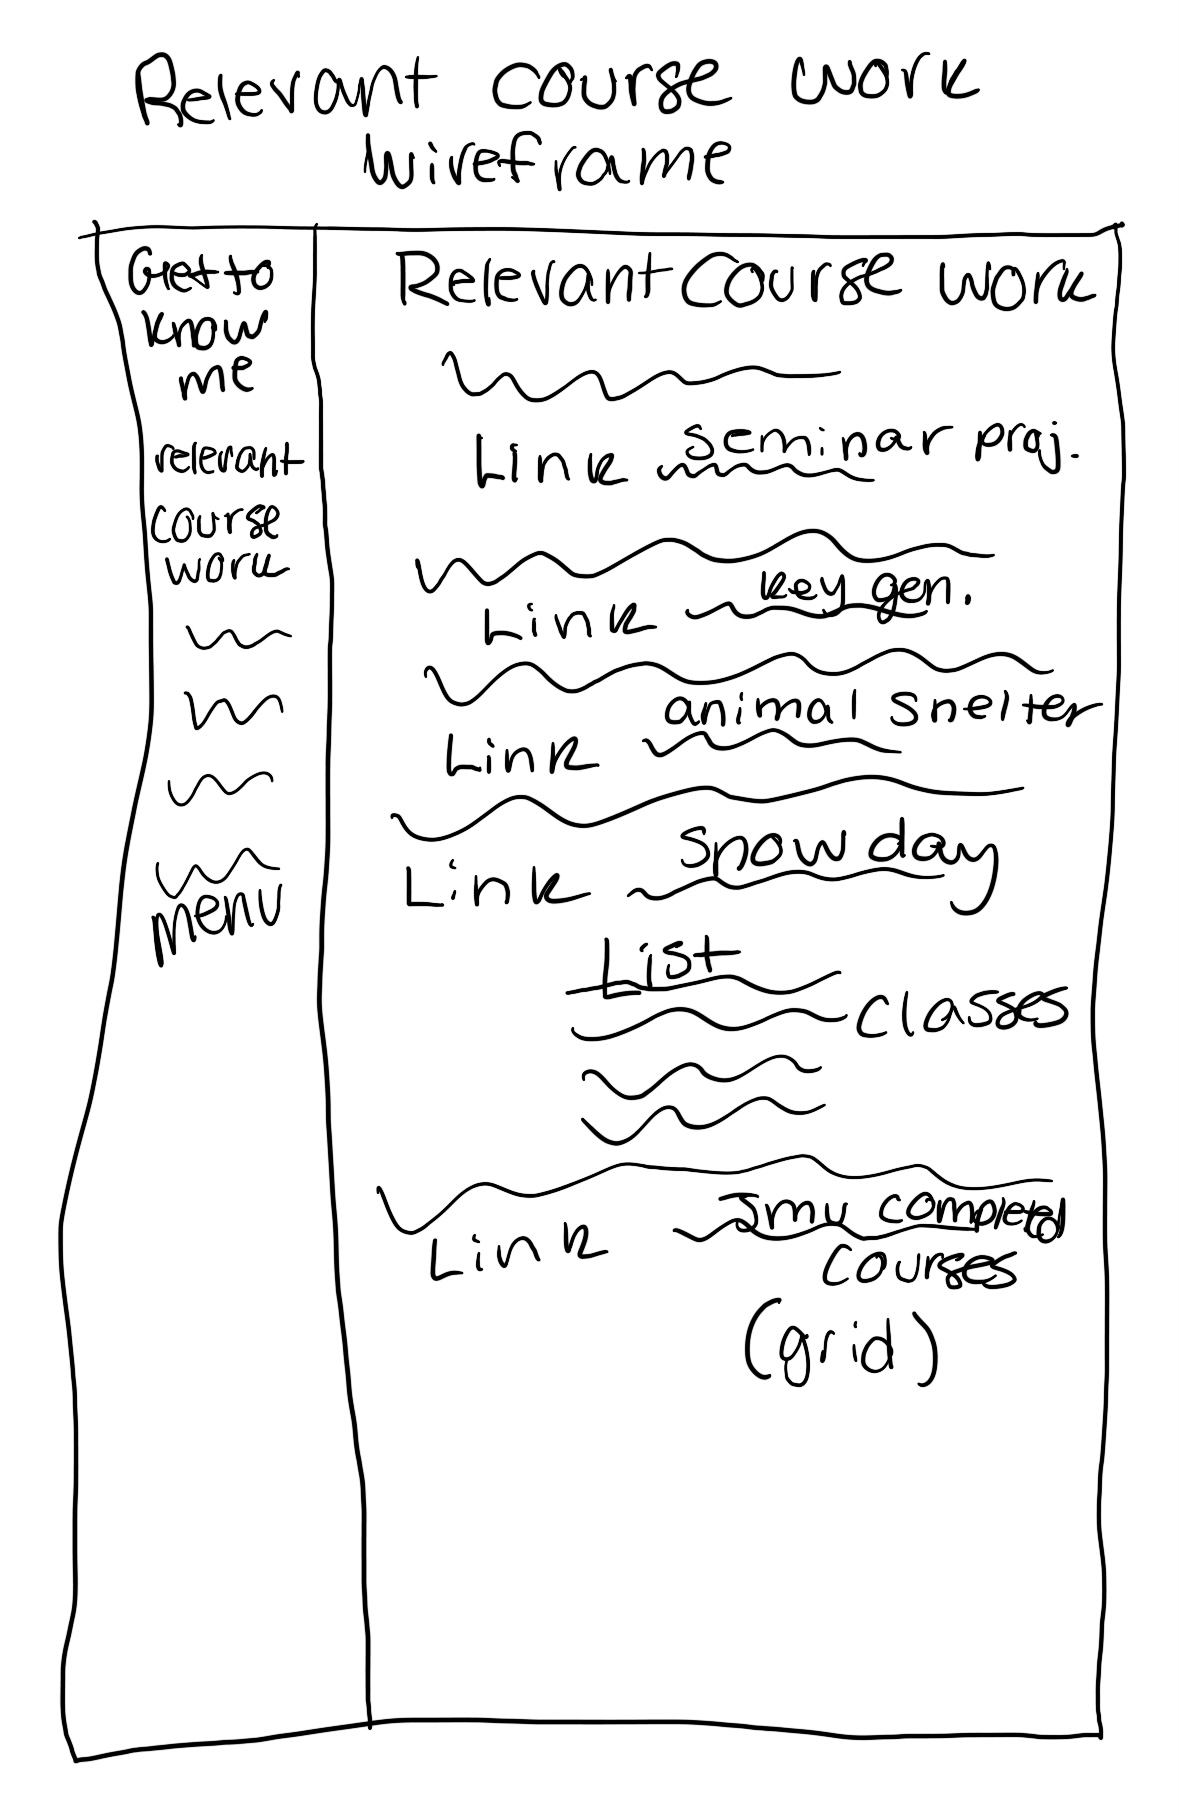 Relevant course work
wireframe
Get to
know
me
relevant
course
work
menu
Relevant Course work
Link seminar proj.
Link key gen.
Link animal shelter
Link snow day
List
classes
Link Jmu completed
courses
(grid)